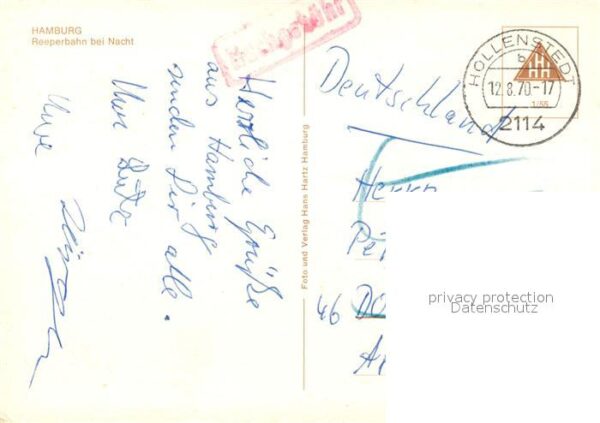 HAMBURG
Reeperbahn bei Nacht
Nachgebühr
Herzliche Grüße
aus Hamburg
senden Dir alle.
Uwe
Foto und Verlag Hans Hartz Hamburg
HOLLENSTEDT
b
12.8.70-17
2114
HHH
1/55
Deutschland
Herrn
Pe
46 DO
A
privacy protection
Datenschutz